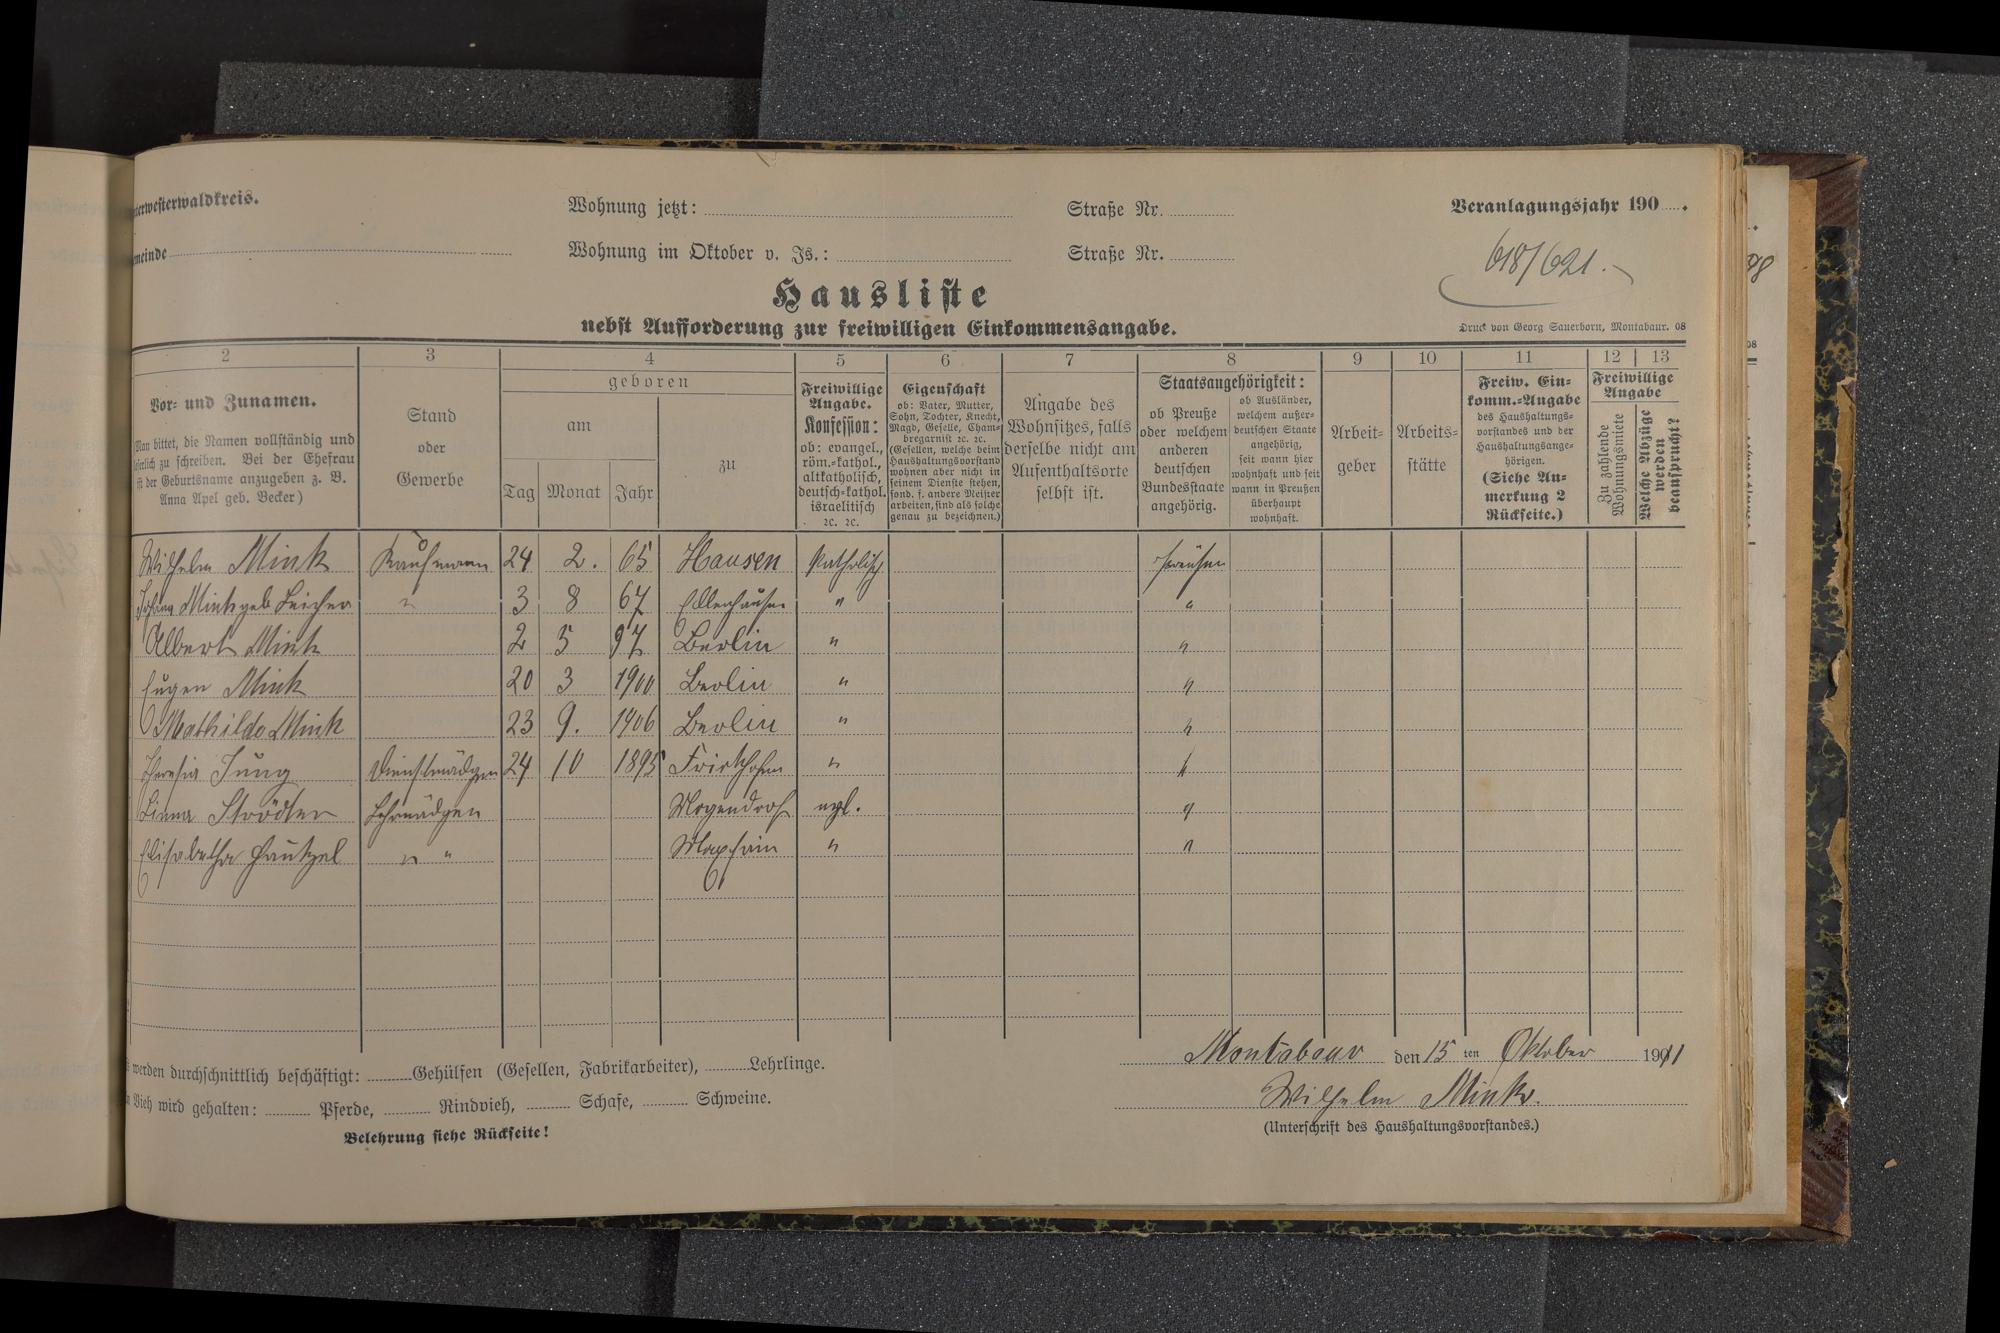 terwesterwaldkreis.
Wohnung jetzt: Straße Nr. Veranlagungsjahr 190 .
meinde Wohnung im Oktober v. Js.: Straße Nr.
618/621.
Hausliste
nebst Aufforderung zur freiwilligen Einkommensangabe.
Druck von Georg Sauerborn, Montabaur. 08
2 3 4 5 6 7 8 9 10 11 12 13
Vor- und Zunamen.
Man bittet, die Namen vollständig und
leserlich zu schreiben. Bei der Ehefrau
ist der Geburtsname anzugeben z. B.
Anna Apel geb. Becker)
Stand
oder
Gewerbe
geboren
am
Tag Monat Jahr
zu
Freiwillige
Angabe.
Konfession:
ob: evangel.,
röm.-kathol.,
altkatholisch,
deutsch-kathol.
israelitisch
2c. 2c.
Eigenschaft
ob: Vater, Mutter,
Sohn, Tochter, Knecht,
Magd, Geselle, Cham-
bregarnist 2c. 2c.
(Gesellen, welche beim
Haushaltungsvorstand
wohnen aber nicht in
seinem Dienste stehen,
sond. f. andere Meister
arbeiten, sind als solche
genau zu bezeichnen.)
Angabe des
Wohnsitzes, falls
derselbe nicht am
Aufenthaltsorte
selbst ist.
Staatsangehörigkeit:
ob Preuße
oder welchem
anderen
deutschen
Bundesstaate
angehörig.
ob Ausländer,
welchem außer-
deutschen Staate
angehörig,
seit wann hier
wohnhaft und seit
wann in Preußen
überhaupt
wohnhaft.
Arbeit-
geber
Arbeits-
stätte
Freiw. Ein-
komm.-Angabe
des Haushaltungs-
vorstandes und der
Haushaltungsange-
hörigen.
(Siehe An-
merkung 2
Rückseite.)
Freiwillige
Angabe
Zu zahlende
Wohnungsmiete
Welche Abzüge
werden
beansprucht?
Wilhelm Mink Kaufmann 24 2. 65 Hausen katholisch Preußen
Mink geb Leicher " 3 8 67 Ellenhausen " "
Albert Mink 2 5 97 Berlin " "
Eugen Mink 20 3 1900 Berlin " "
Mathilde Mink 23 9. 1906 Berlin " "
Theresia Jung Dienstmädgen 24 10 1895 Frickhofen " "
Strödter Lehrmädgen Mogendorf "
Elisabetha " " Maxsain " "
werden durchschnittlich beschäftigt: Gehülfen (Gesellen, Fabrikarbeiter), Lehrlinge.
Vieh wird gehalten: Pferde, Rindvieh, Schafe, Schweine.
Belehrung siehe Rückseite!
Montabaur den 15 ten Oktober 1911
Wilhelm Mink.
(Unterschrift des Haushaltungsvorstandes.)